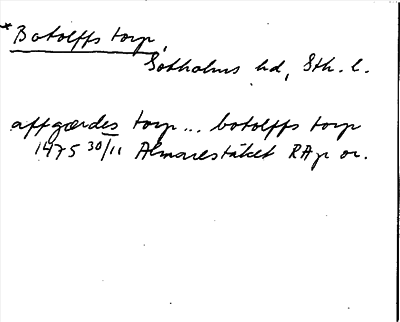 *Botolffs torp,
Sotholms hd, Sth. l.
affgærdes torp... botolffs torp
1475 30/11 Almarestäket RAp or.